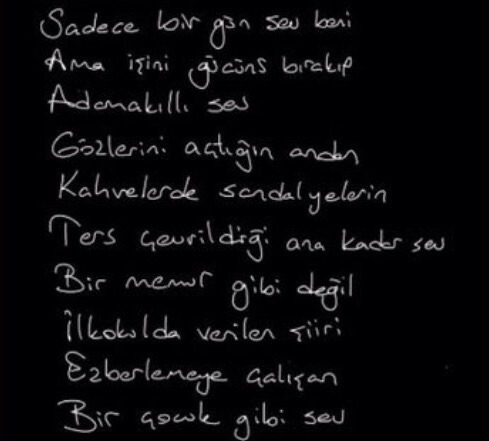 Sadece bir gün sev beni
Ama işini gücünü bırakıp
Adamakıllı sev
Gözlerini açtığın andan
Kahvelerde sandalyelerin
Ters çevrildiği ana kadar sev
Bir memur gibi değil
İlkokulda verilen şiiri
Ezberlemeye çalışan
Bir çocuk gibi sev